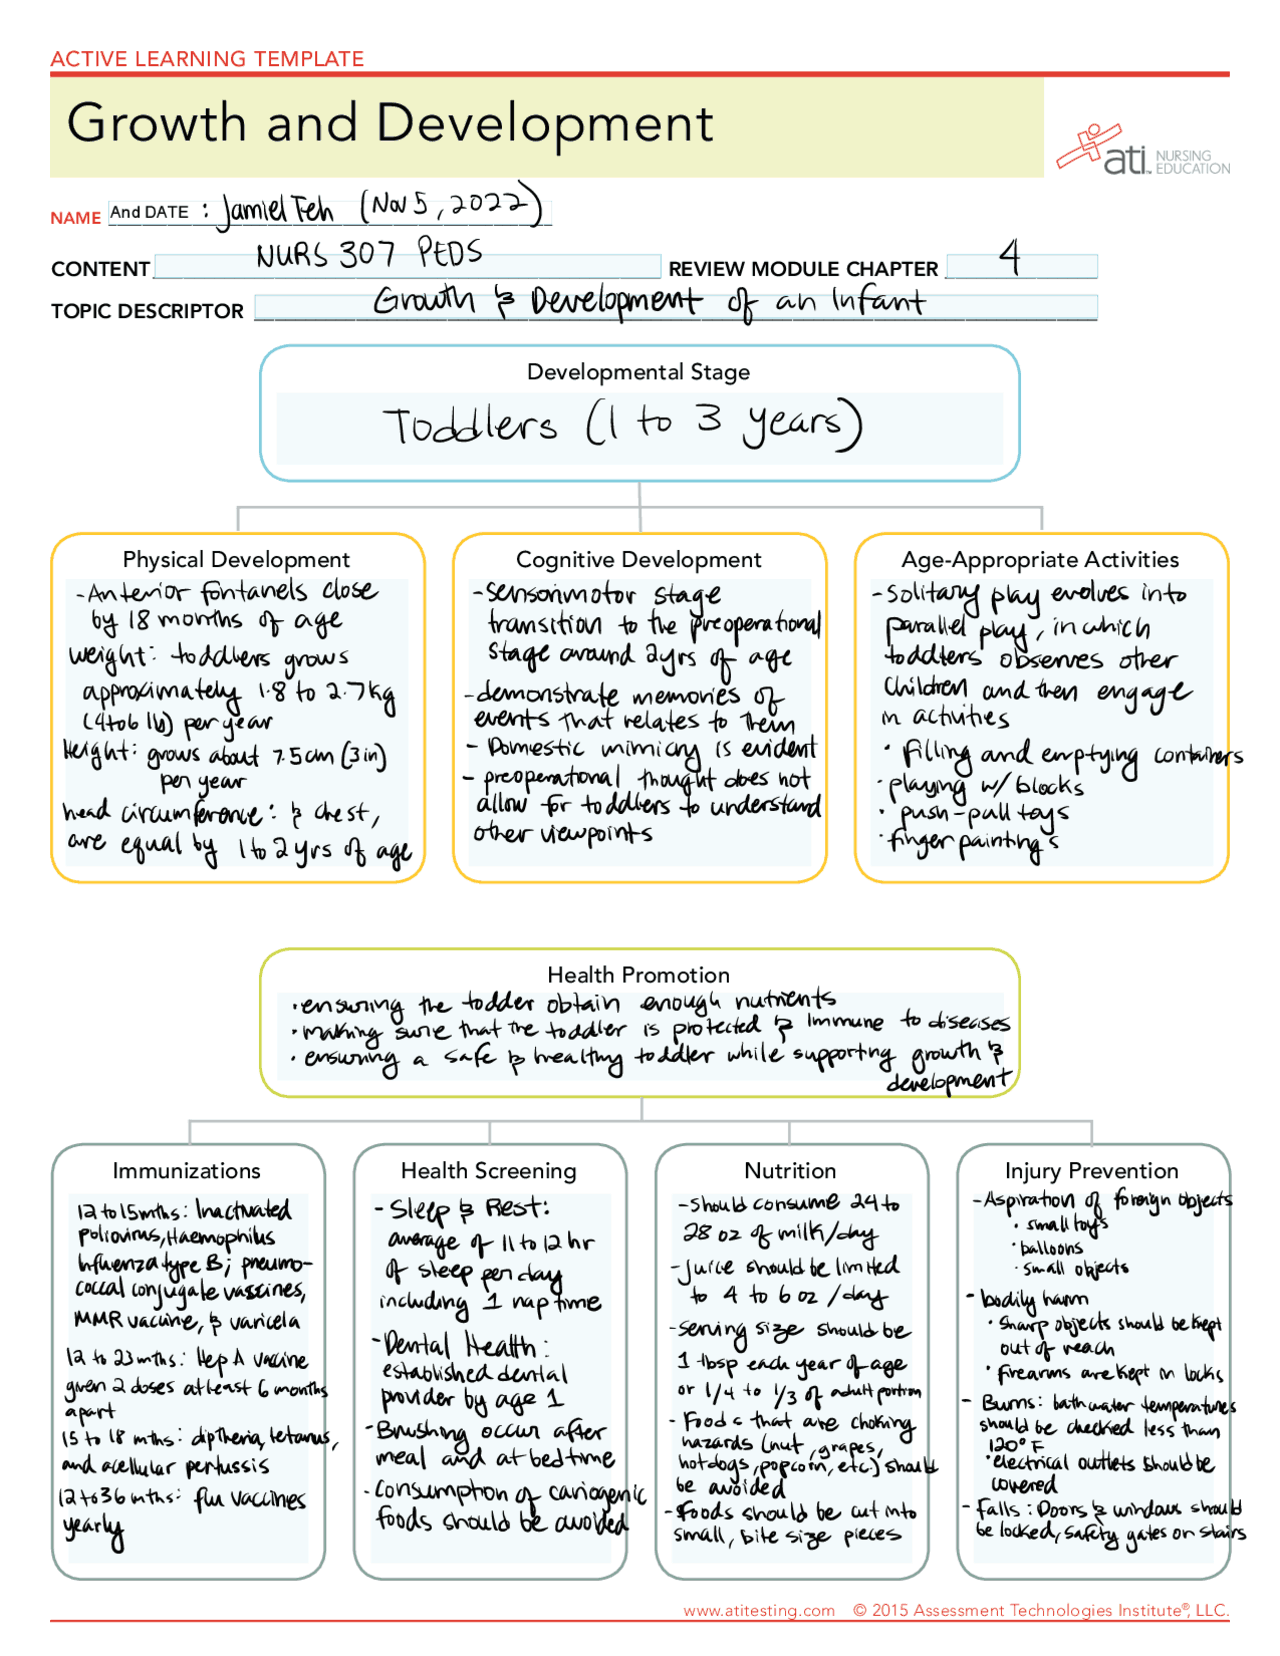 ACTIVE LEARNING TEMPLATE
Growth and Development
ati NURSING EDUCATION
NAME And DATE : Jamiel Teh (Nov 5, 2022)
CONTENT NURS 307 PEDS REVIEW MODULE CHAPTER 4
TOPIC DESCRIPTOR Growth & Development of an Infant
Developmental Stage
Toddlers (1 to 3 years)
Physical Development
- Anterior fontanels close
by 18 months of age
weight: toddlers grows
approximately 1.8 to 2.7 kg
(4 to 6 lb) per year
Height: grows about 7.5 cm (3 in)
per year
head circumference: & chest,
are equal by 1 to 2 yrs of age
Cognitive Development
- sensorimotor stage
transition to the preoperational
stage around 2yrs of age
- demonstrate memories of
events that relates to them
- Domestic mimicry is evident
- preoperational thought does not
allow for toddlers to understand
other viewpoints
Age-Appropriate Activities
- Solitary play evolves into
parallel play, in which
toddlers observes other
children and then engage
in activities
· filling and emptying containers
· playing w/ blocks
· push-pull toys
· finger painting s
Health Promotion
· ensuring the todder obtain enough nutrients
· making sure that the toddler is protected & immune to diseases
· ensuring a safe & healthy toddler while supporting growth &
development
Immunizations
12 to 15 mths: Inactivated
poliovirus, Haemophilus
Influenza type B; pneumo-
coccal conjugate vassines,
MMR vaccine, & varicela
12 to 23 mths: Hep A vaccine
given 2 doses at least 6 months
apart
15 to 18 mths: diptheria, tetanus,
and acellular pertussis
12 to 36 mths: flu vaccines
yearly
Health Screening
- Sleep & Rest:
average of 11 to 12 hr
of sleep per day
including 1 nap time
- Dental Health:
established dental
provider by age 1
- Brushing occur after
meal and at bedtime
- Consumption of cariogenic
foods should be avoided
Nutrition
- Should consume 24 to
28 oz of milk/day
- Juice should be limited
to 4 to 6 oz /day
- serving size should be
1 tbsp each year of age
or 1/4 to 1/3 of adult portion
- Foods that are choking
hazards (nut, grapes,
hotdogs, popcorn, etc) should
be avoided
- Foods should be cut into
small, bite size pieces
Injury Prevention
- Aspiration of foreign objects
· small toys
· balloons
· small objects
- bodily harm
· sharp objects should be kept
out of reach
· firearms are kept in locks
- Burns: bath water temperatures
should be checked less than
120° F
· electrical outlets should be
covered
- Falls: Doors & windows should
be locked, safety gates on stairs
www.atitesting.com © 2015 Assessment Technologies Institute®, LLC.